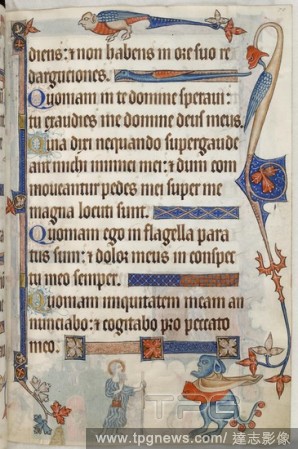 diens: ⁊ non habens in ore suo re
dargutiones.
Quoniam in te domine speraui:
tu exaudies me domine deus meus.
Quia dixi nequando supergaude
ant michi inimici mei: ⁊ dum com
moueantur pedes mei super me
magna locuti sunt.
Quoniam ego in flagella para
tus sum: ⁊ dolor meus in conspec
tu meo semper.
Quoniam iniquitatem meam an
nunciabo: ⁊ cogitabo pro peccato
meo.
TPG
www.tpgnews.com/ 達志影像